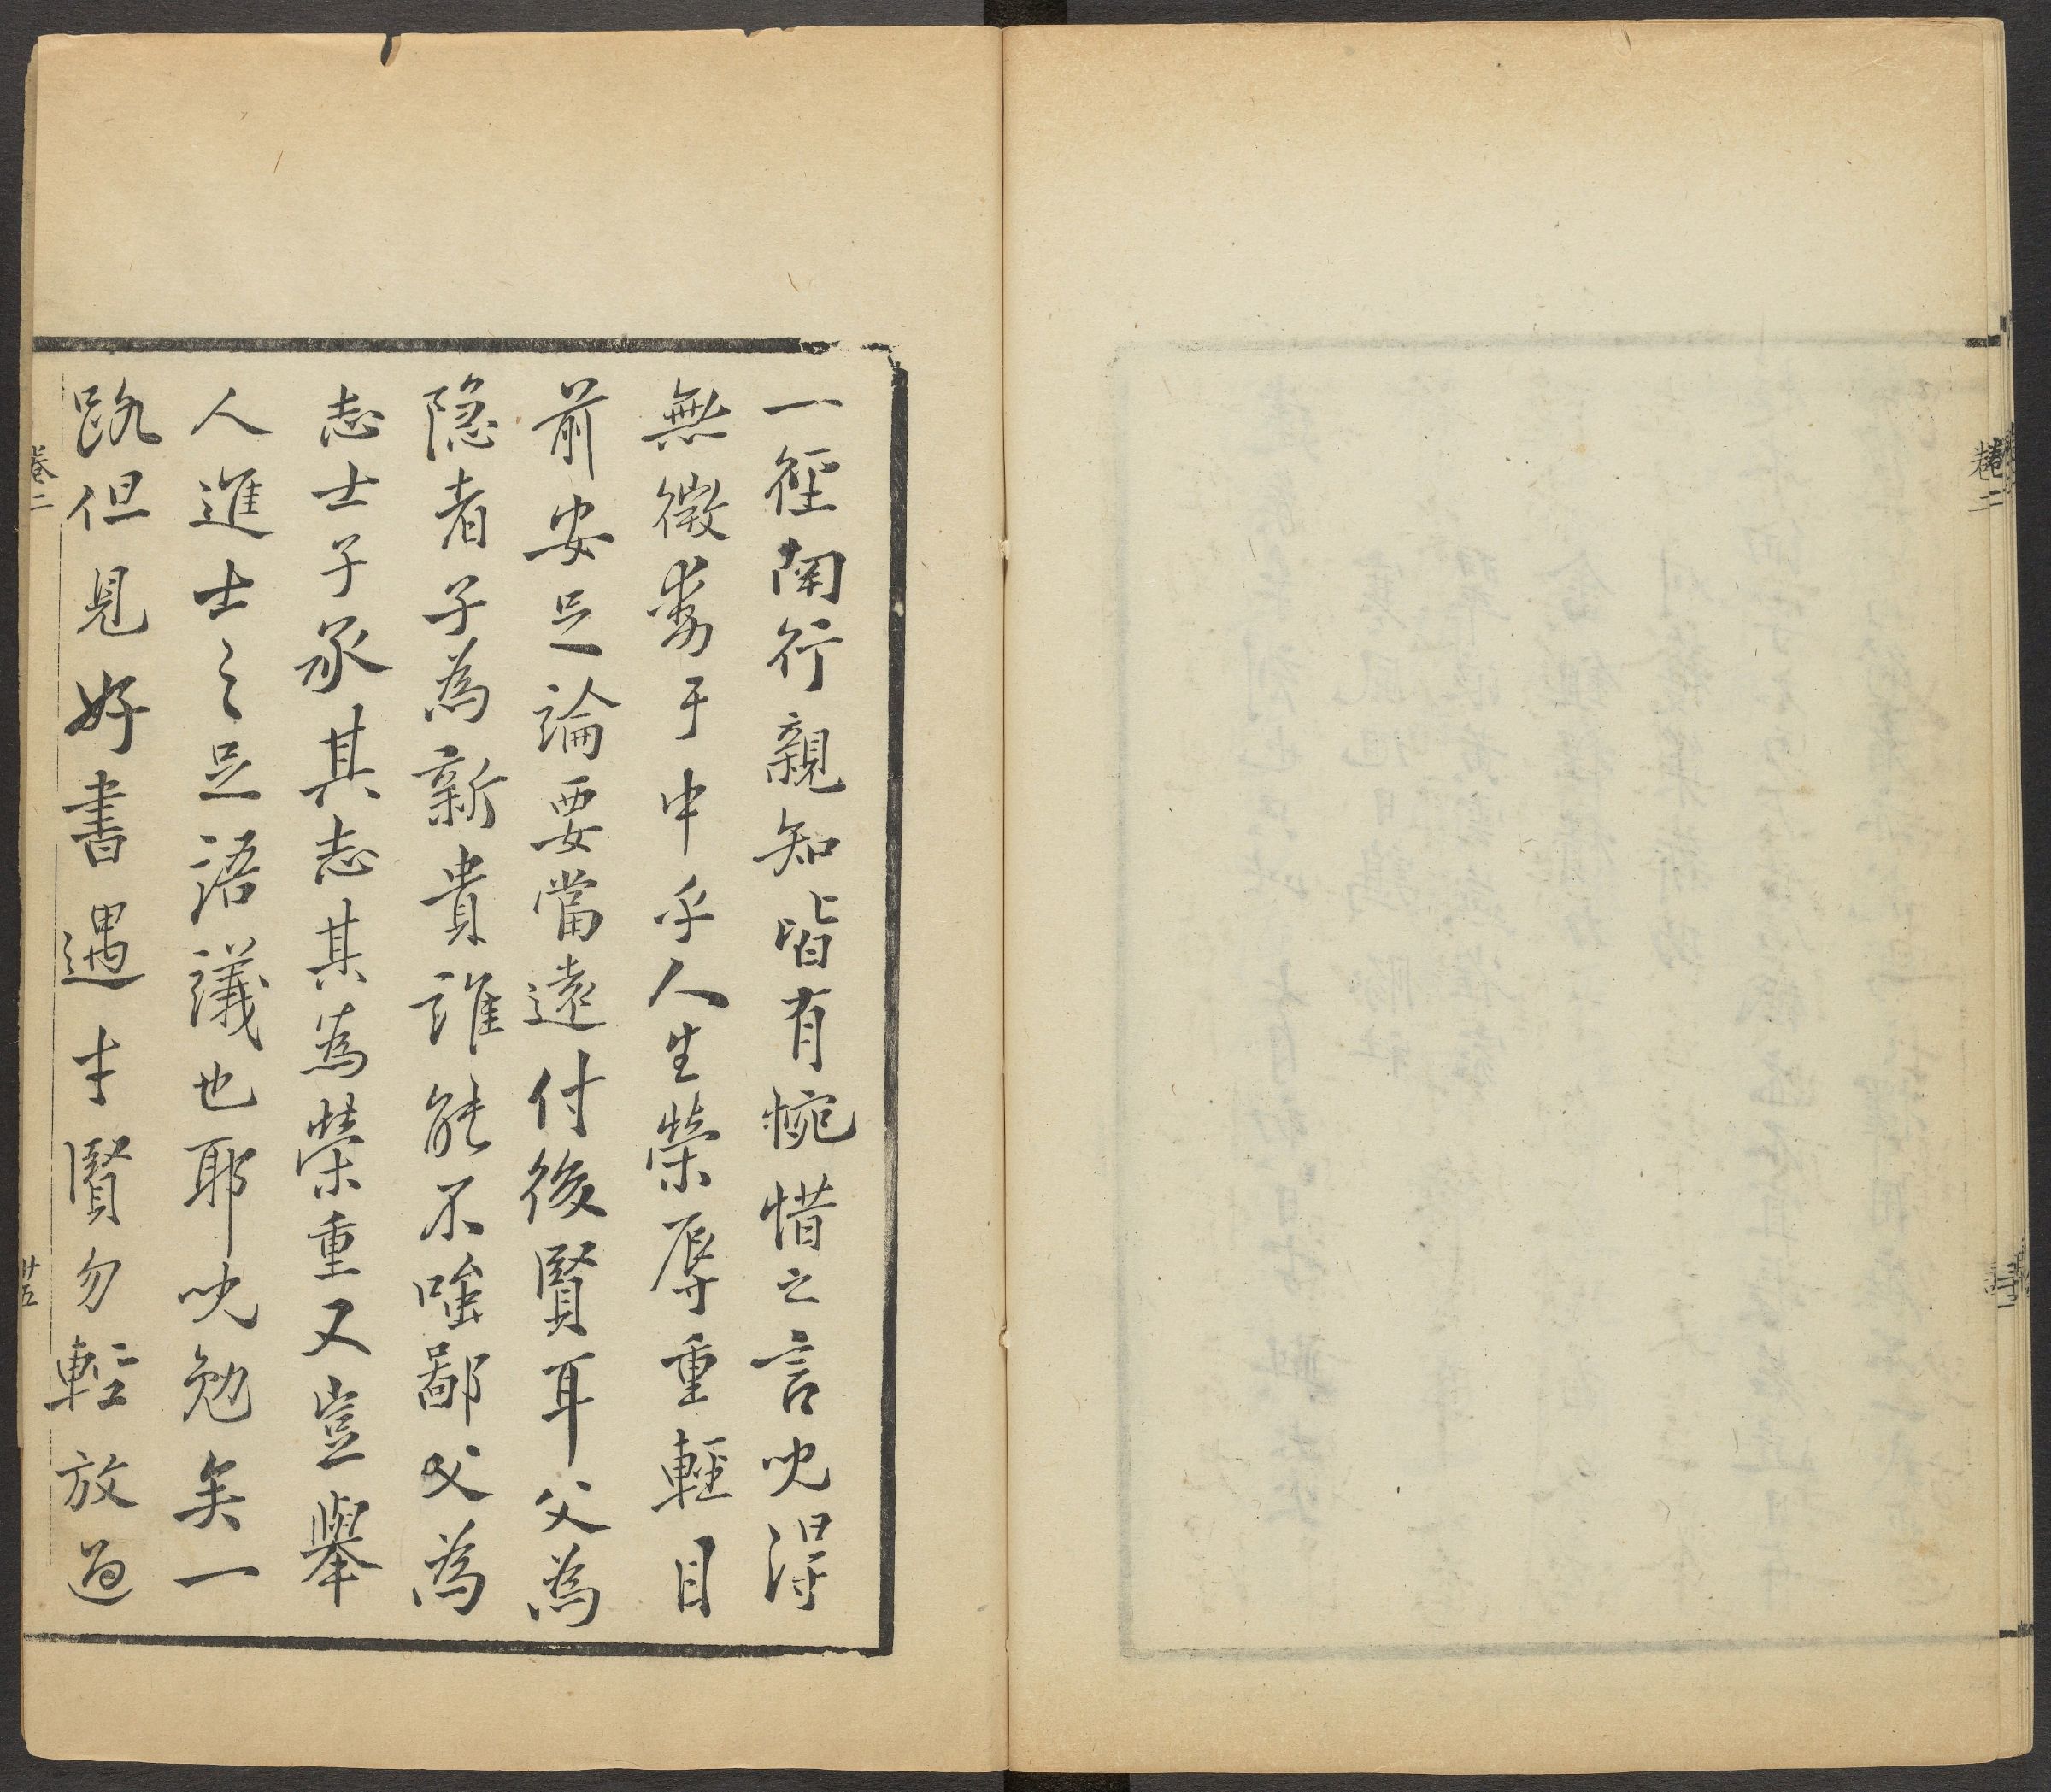 卷二
一徑南行親知皆有惋惜之言吮得
無微芥于中乎人生榮辱重輕目
前安足論要當遠付後賢耳父為
隐者子為新貴誰能不嗤鄙父為
志士子承其志其為榮重又豈舉
人進士之足語議也耶吮勉矣一
路但見好書遇才賢勿輕放過
卷二